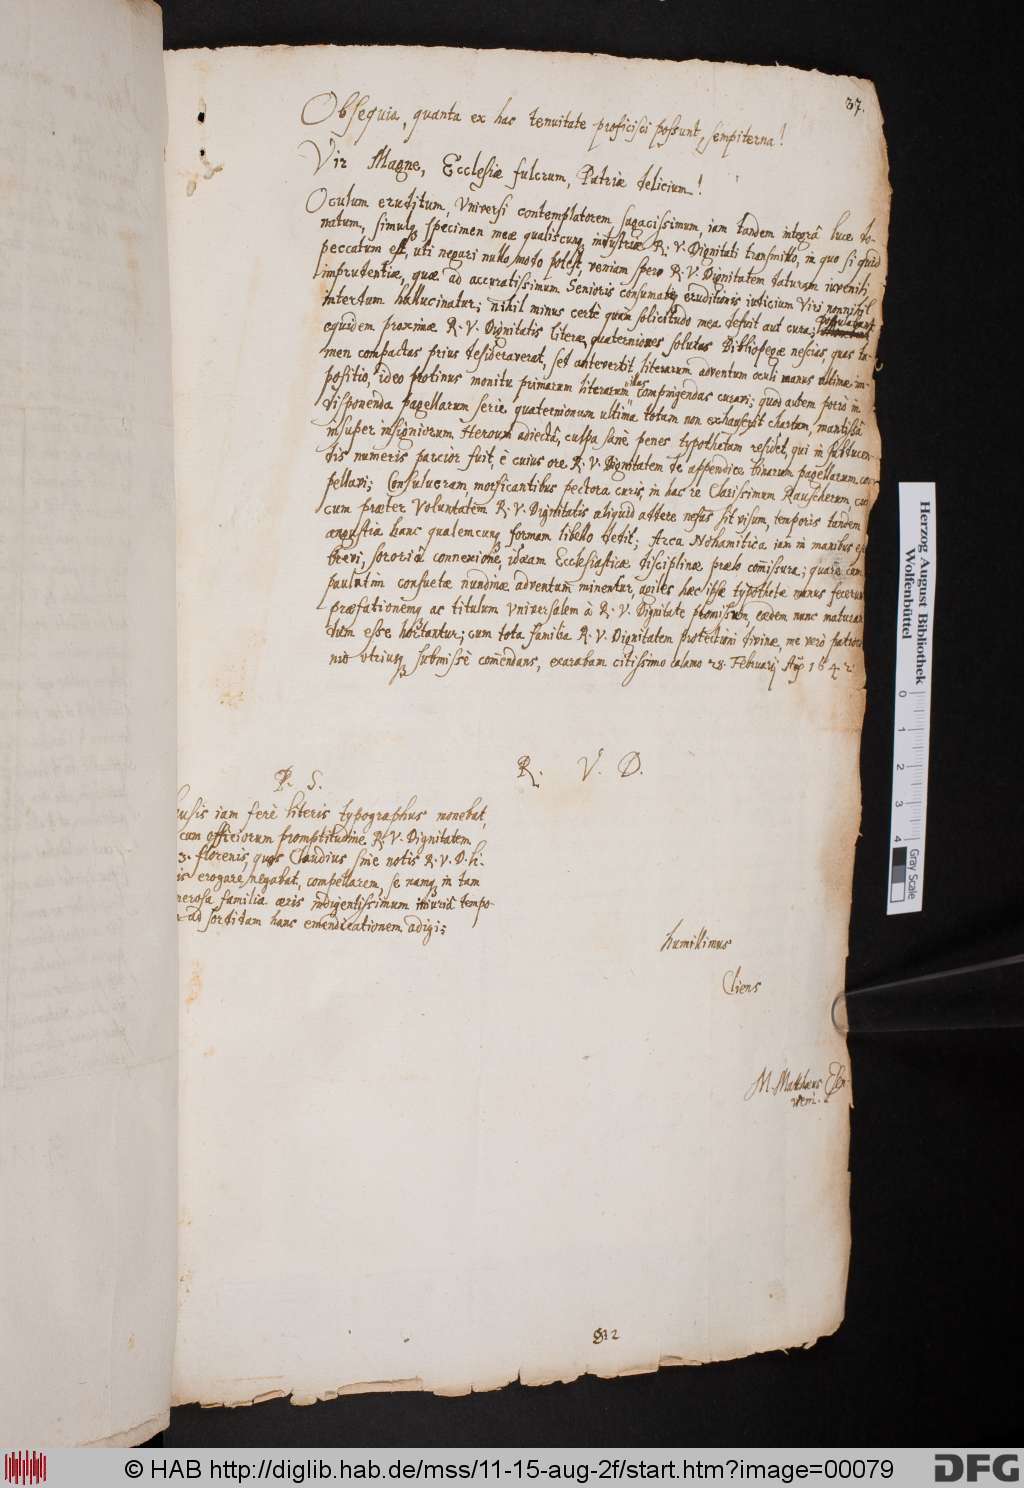 37.
Obsequia, quanta ex hac tenuitate proficisci possunt, sempiterna!
Vir Magne, Ecclesiæ fulcrum, Patriæ delicium!
Oculum eruditum, Universi contemplatorem sagacissimum, iam tandem integrâ luce do-
natum, simulq; specimen meæ qualiscunq; industriæ R. V. Dignitati transmitto, in quo si quid
peccatum est, uti negari nullo modo potest, veniam spero R. V. Dignitatem daturam iuvenili
imprudentiæ, quæ ad accuratissimum Senioris consumatæq; eruditionis iudicium Viri nonnihil
interdum hallucinatur; nihil minus certè quàm solicitudo mea defuit aut cura;
equidem proximæ R. V. Dignitatis literæ, quaterniones solutas Bibliopegæ nescias, quas ta-
men compactas prius desideraverat, sed antevertit literarum adventum oculi manus ultima im-
positio, ideo protinus monitu primarum literarum illas compingendas curavi; quod autem porrò in
disponenda pagellarum serie quaternionum ultima totam non exhauserit chartam, mantissâ
insuper insigniorum Heroum adiectâ, culpa sanè penes typothetam residet, qui in subducen-
dis numeris parcior fuit, è cuius ore R. V. Dignitatem de appendice binarum pagellarum com-
pellavi; Consulueram morsicantibus pectora curis, in hac re Clarissimum Rauscherum, cui
cum præter Voluntatem R. V. Dignitatis aliquid addere nefas sit visum, temporis tandem
angustia hanc qualemcunq; formam libello dedit; Arca Nohamitica iam in manibus est
brevi, sororiâ connexione, ideam Ecclesiasticæ disciplinæ prælo com̃issura; quare cum
paulatim consuetæ nundinæ adventum minentur, apices hæc ipsæ typothetæ manus fecerunt
præfationemq; ac titulum universalem à R. V. Dignitate promissum, eædem nunc maturan-
dum esse hortantur; cum tota familia R. V. Dignitatem protectioni divinæ, me verò patroci-
nio utriusq; submissè com̃endans, exarabam citissimo calamo 28. Februarij Aõ 1642.
R. V. D.
P. S.
usis iam ferè literis typographus monebat,
cum officiorum promptitudine R. V. Dignitatem
3. florenis, quos Claudius sine notis R. V. D. li-
is erogare negabat, compellarem, se namq; in tam
nerosa familia æris indigentissimum iniuriâ tempo-
ad sordidam hanc emendicationem adigi;
humillimus
Cliens
M. Matthæus
812
Herzog August Bibliothek
Wolfenbüttel
0 1 2 3 4
Gray Scale
© HAB http://diglib.hab.de/mss/11-15-aug-2f/start.htm?image=00079
DFG